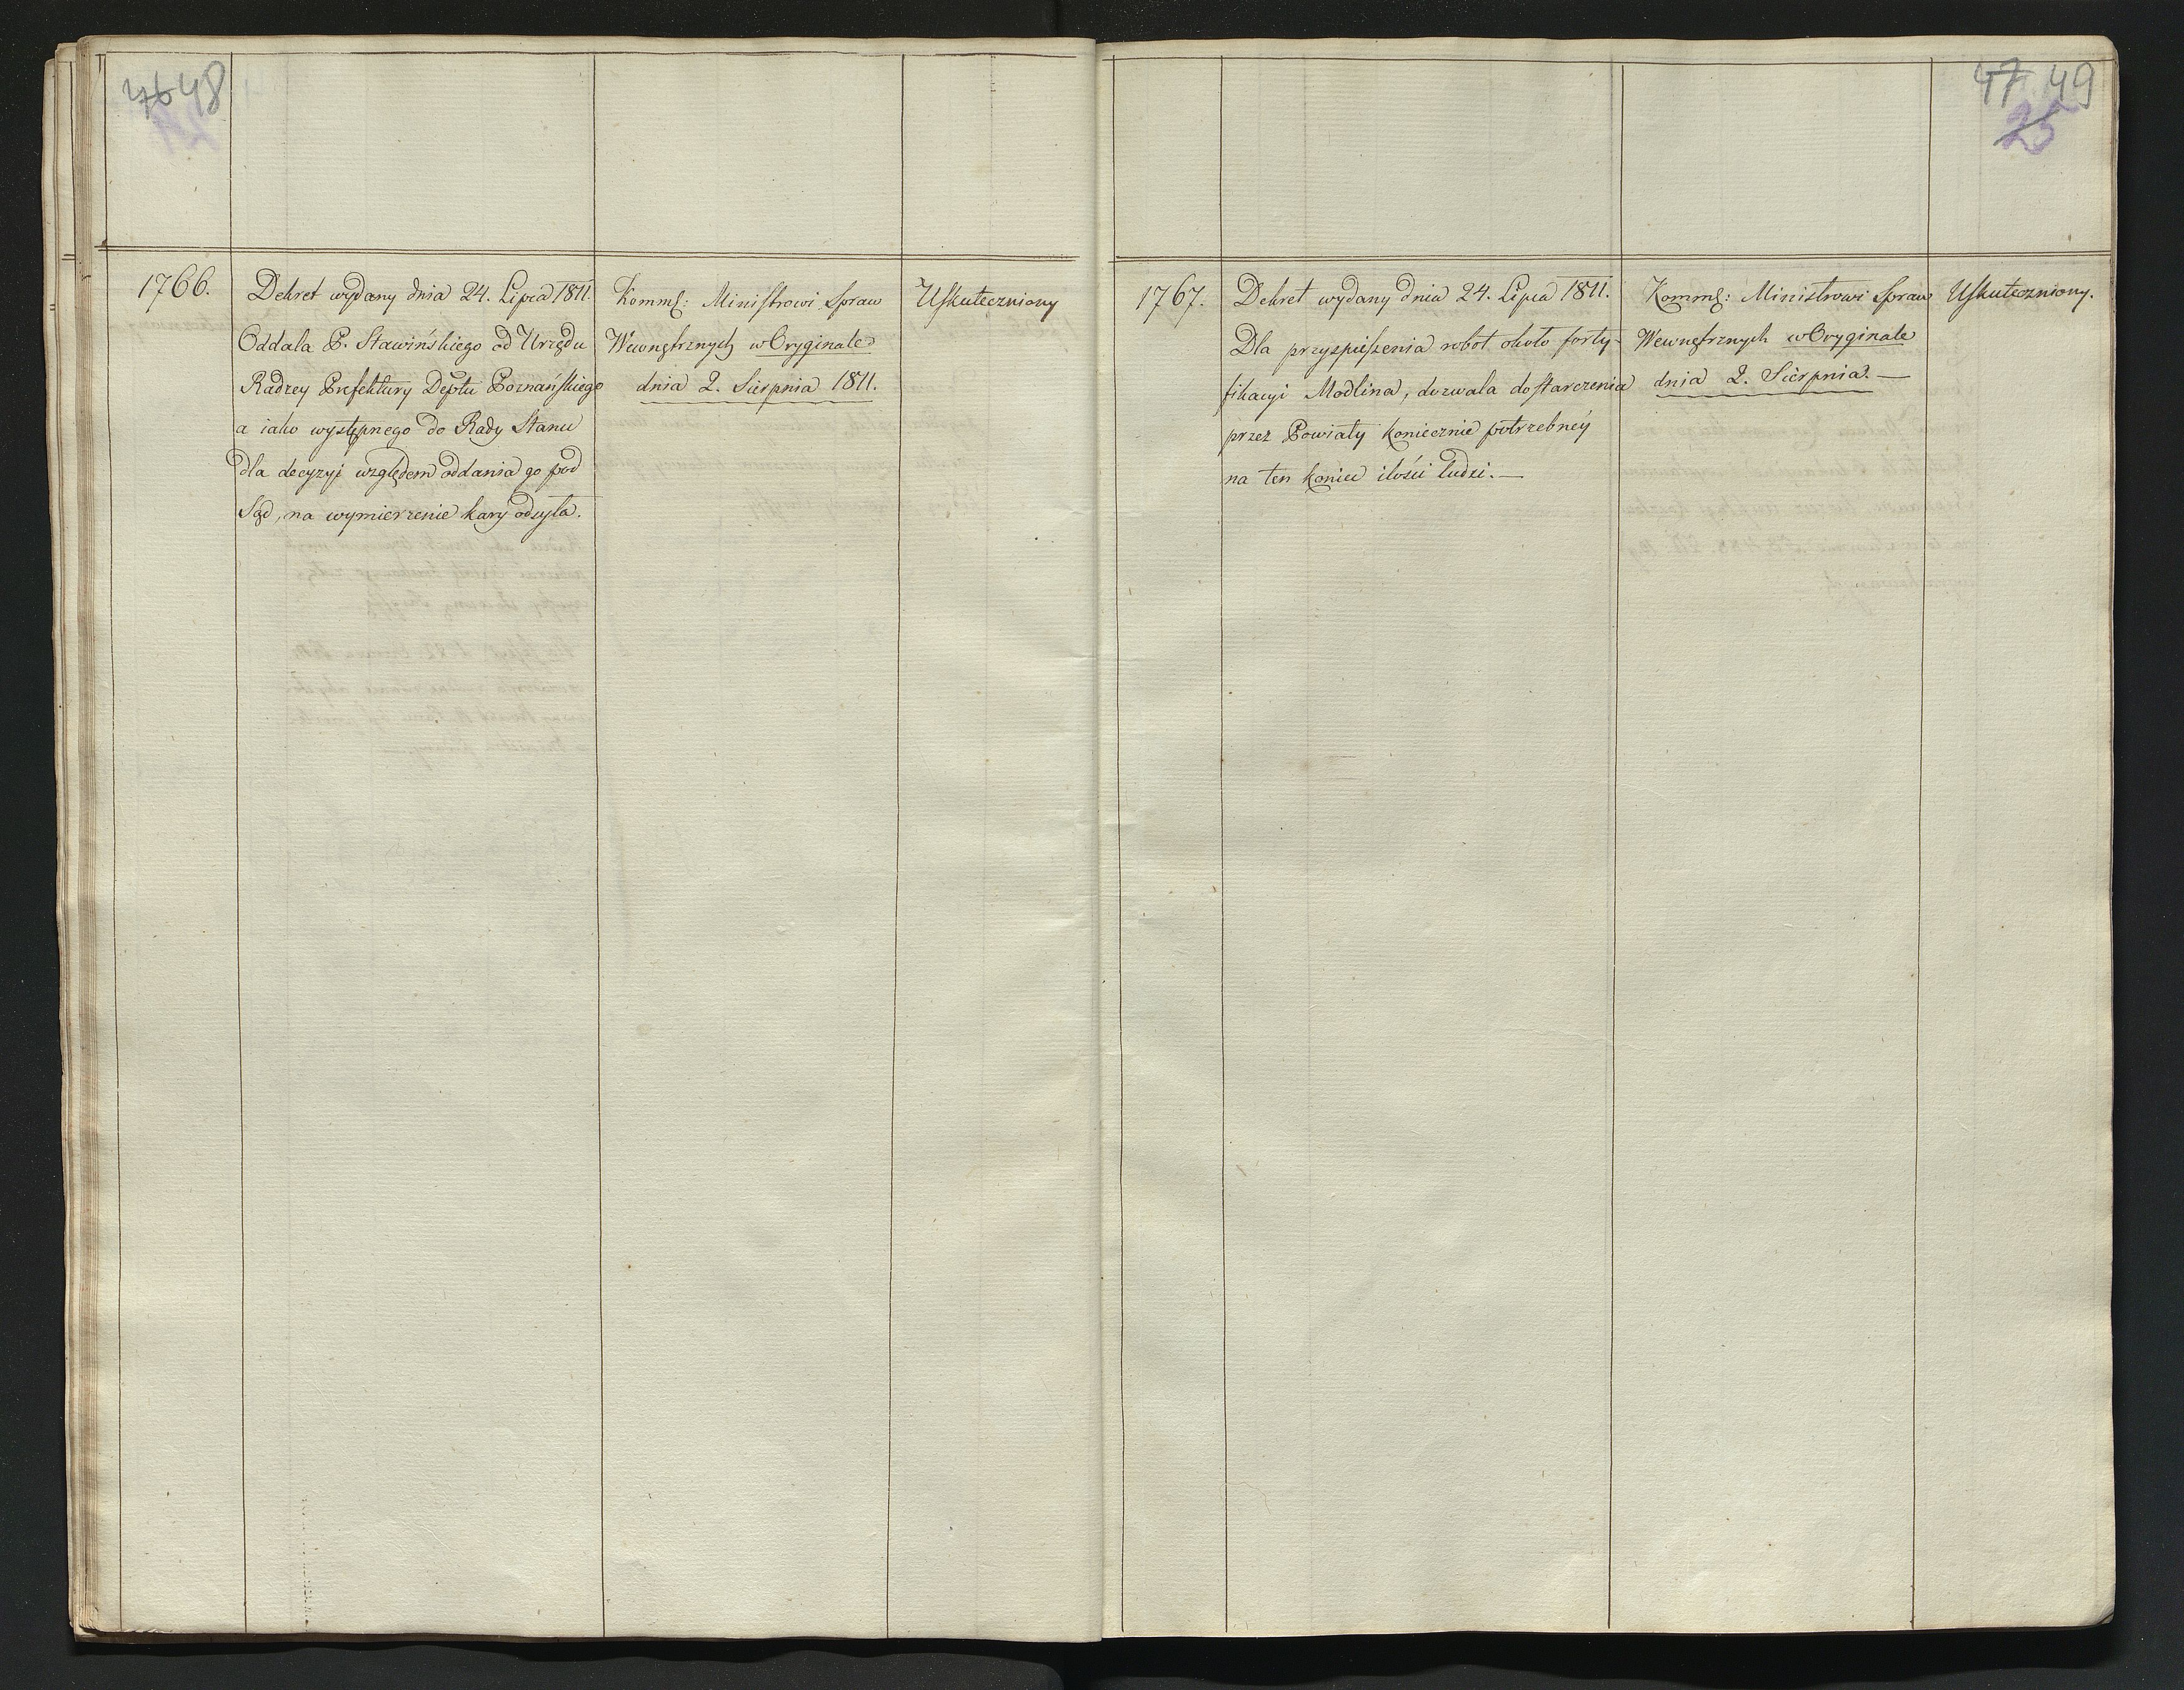 46 48
1766.
Dekret wydany dnia 24. Lipca 1811.
Oddala P. Stawińskiego od Urzędu
Radzcy Prefektury Deptu Poznańskiego
a iako występnego do Rady Stanu
dla decyzyi względem oddania go pod
Sąd, na wymierzenie kary odsyła.
Komms: Ministrowi Spraw
Wewnętrznych w Oryginale
dnia 2. Sierpnia 1811.
Uskuteczniony
47 49
25
1767.
Dekret wydany dnia 24. Lipca 1811.
Dla przyspieszenia robot około forty-
fikacyi Modlina, dozwala dostarczenia
przez Powiaty koniecznie potrzebnéy
na ten koniec ilości ludzi.—
Komms: Ministrowi Spraw
Wewnętrznych w Oryginale
dnia 2. Sierpnia.—
Uskuteczniony.